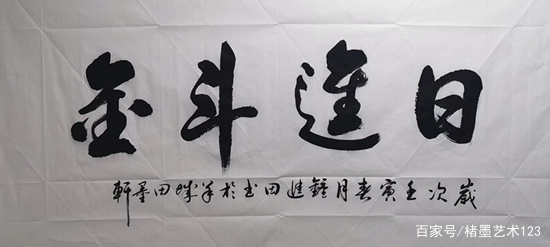 日進斗金
歲次壬寅春月鐘進田書於羊城田墨軒
百家号/楮墨艺术123